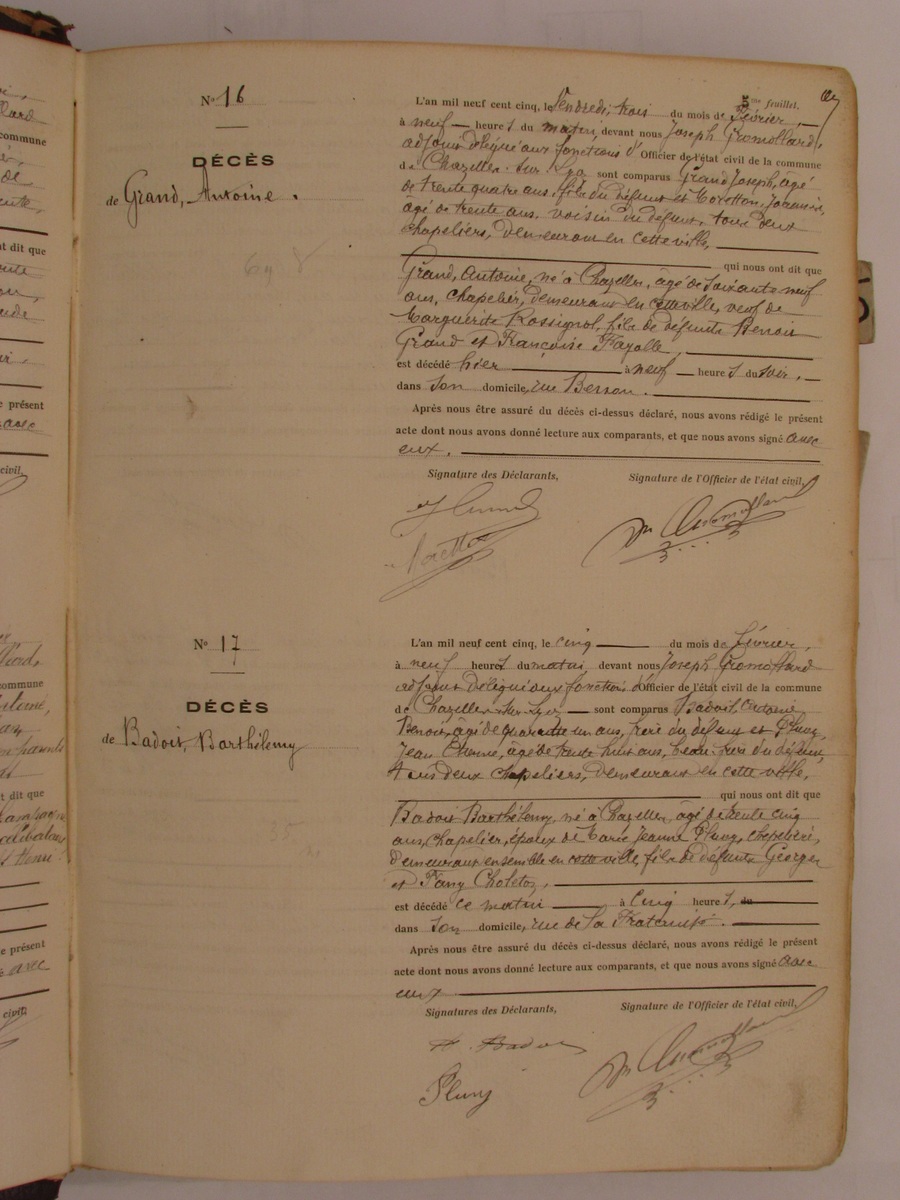 5me feuillet.
Nº 16
DÉCÈS
de Grand, Antoine.
69
L'an mil neuf cent cinq, le Vendredi, trois du mois de Février,
à neuf heures du matin, devant nous Joseph Gromollard,
adjoint délégué aux fonctions d'Officier de l'état civil de la commune
de Chazelles-sur-Lyon sont comparus Grand Joseph, âgé
de trente quatre ans, fils du défunt et Moretton, Joannès,
âgé de trente ans, voisin du défunt, tous deux
chapeliers, demeurant en cette ville,
qui nous ont dit que
Grand, Antoine, né à Chazelles, âgé de soixante-neuf
ans, chapelier, demeurant en cette ville, veuf de
Marguerite Rossignol, fils de défunts Benoit
Grand et Françoise Fayolle,
est décédé hier à neuf heures du soir,
dans son domicile, rue Berson.
Après nous être assuré du décès ci-dessus déclaré, nous avons rédigé le présent
acte dont nous avons donné lecture aux comparants, et que nous avons signé avec
eux.
Signature des Déclarants,
Signature de l'Officier de l'état civil,
Nº 17
DÉCÈS
de Badoit, Barthélemy
35
L'an mil neuf cent cinq, le cinq du mois de février,
à neuf heures du matin devant nous Joseph Gromollard
adjoint délégué aux fonctions d'Officier de l'état civil de la commune
de Chazelles-sur-Lyon sont comparus Badoit, Antoine
Benoit, âgé de quarante un ans, frère du défunt et Pluvy,
Jean Etienne, âgé de trente huit ans, beau frère du défunt,
tous deux chapeliers, demeurant en cette ville,
qui nous ont dit que
Badoit Barthélemy, né à Chazelles, âgé de trente cinq
ans, chapelier, époux de Marie Jeanne Pluvy, chapelière,
demeurant ensemble en cette ville, fils de défunts Georges
et Fany Choleton,
est décédé ce matin à cinq heures, du
dans son domicile, rue de la Fraternité.
Après nous être assuré du décès ci-dessus déclaré, nous avons rédigé le présent
acte dont nous avons donné lecture aux comparants, et que nous avons signé avec
eux
Signatures des Déclarants,
Signature de l'Officier de l'état civil,
Badoit
Pluvy